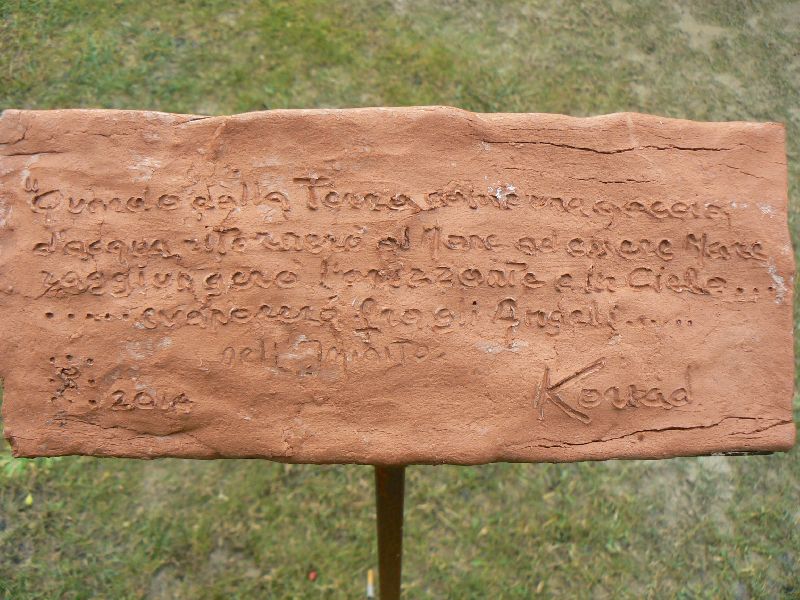 "Quando dalla Terra come una goccia
d'acqua ritornerò al Mare ad essere Mare
raggiungerò l'orizzonte e il Cielo....
...... evaporerò fra gli Angeli......
nell'Infinito.
2014 Konrad